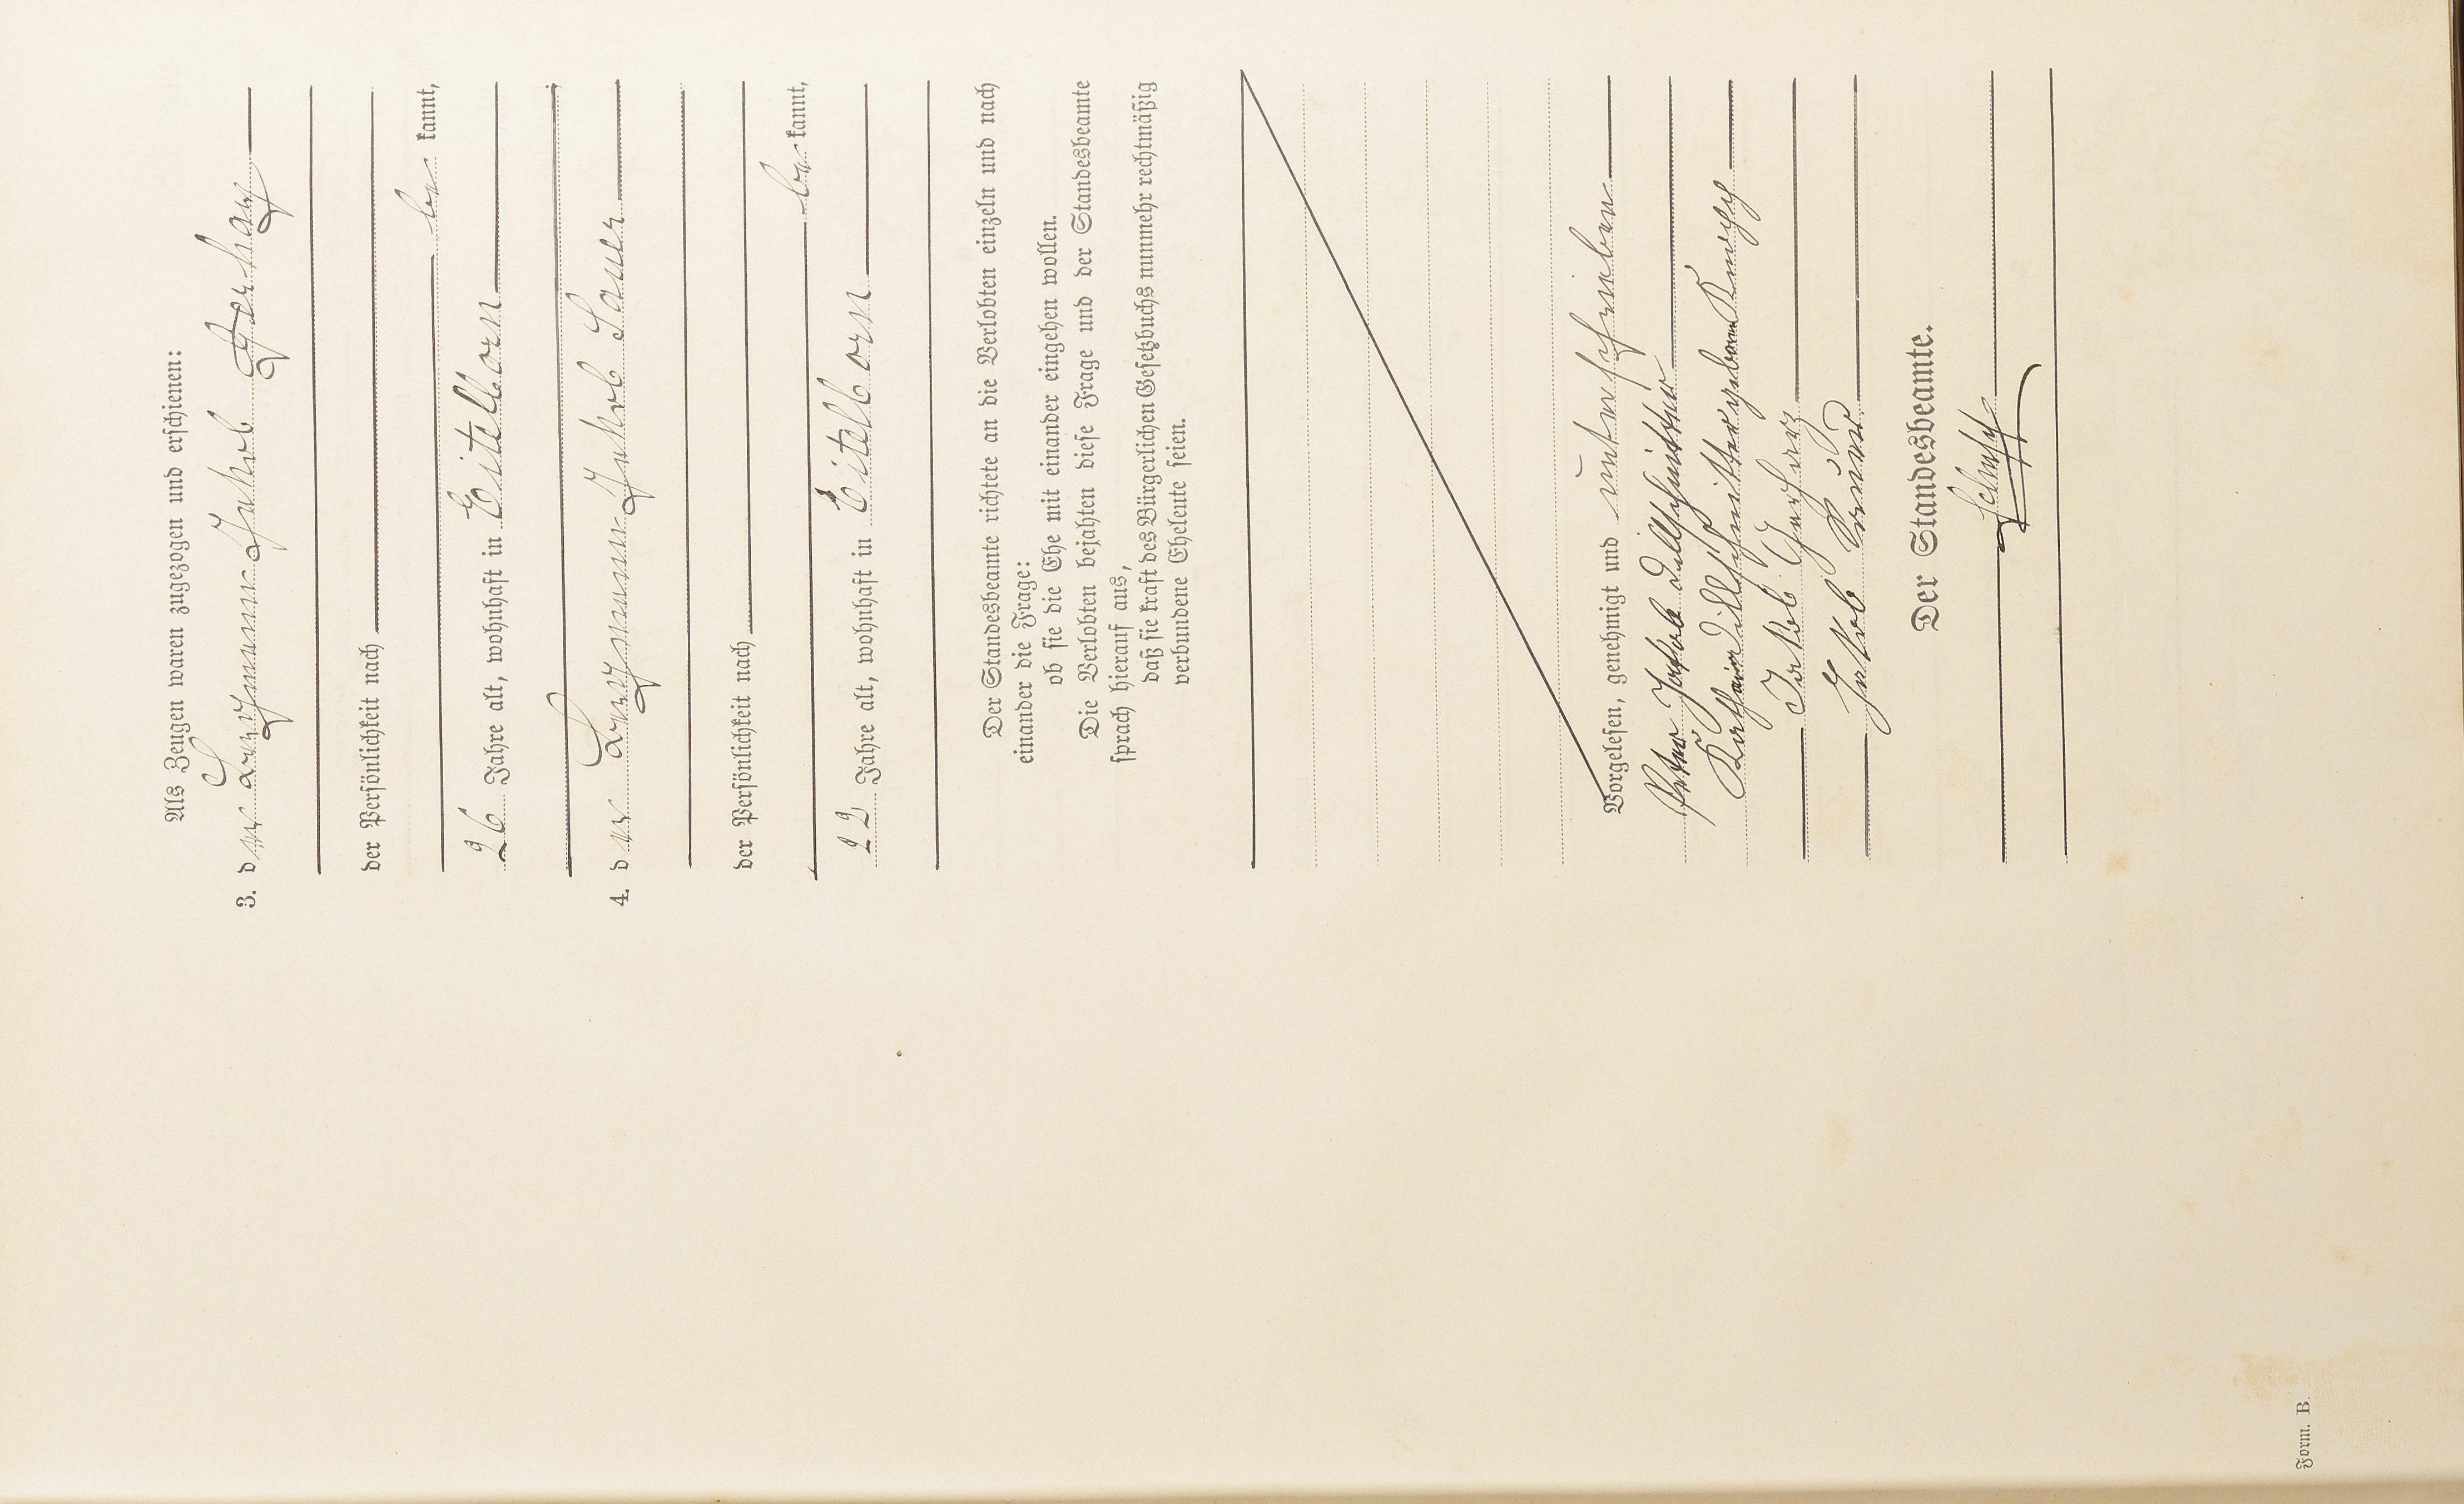 Als Zeugen waren zugezogen und erschienen:
3. der Bergmann Jakob Gerharz
der Persönlichkeit nach
be kannt,
26 Jahre alt, wohnhaft in Eitelborn
4. der Bergmann Jakob Sauer
der Persönlichkeit nach
be kannt,
22 Jahre alt, wohnhaft in Eitelborn
Der Standesbeamte richtete an die Verlobten einzeln und nach
einander die Frage:
ob sie die Ehe mit einander eingehen wollen.
Die Verlobten bejahten diese Frage und der Standesbeamte
sprach hierauf aus,
daß sie kraft des Bürgerlichen Gesetzbuchs nunmehr rechtmäßig
verbundene Eheleute seien.
Vorgelesen, genehmigt und unterschrieben
Peter Jakob Dillschnitter
Dillschnitter geboren
Jakob Gerharz
Jakob Sauer
Der Standesbeamte.
Form. B.